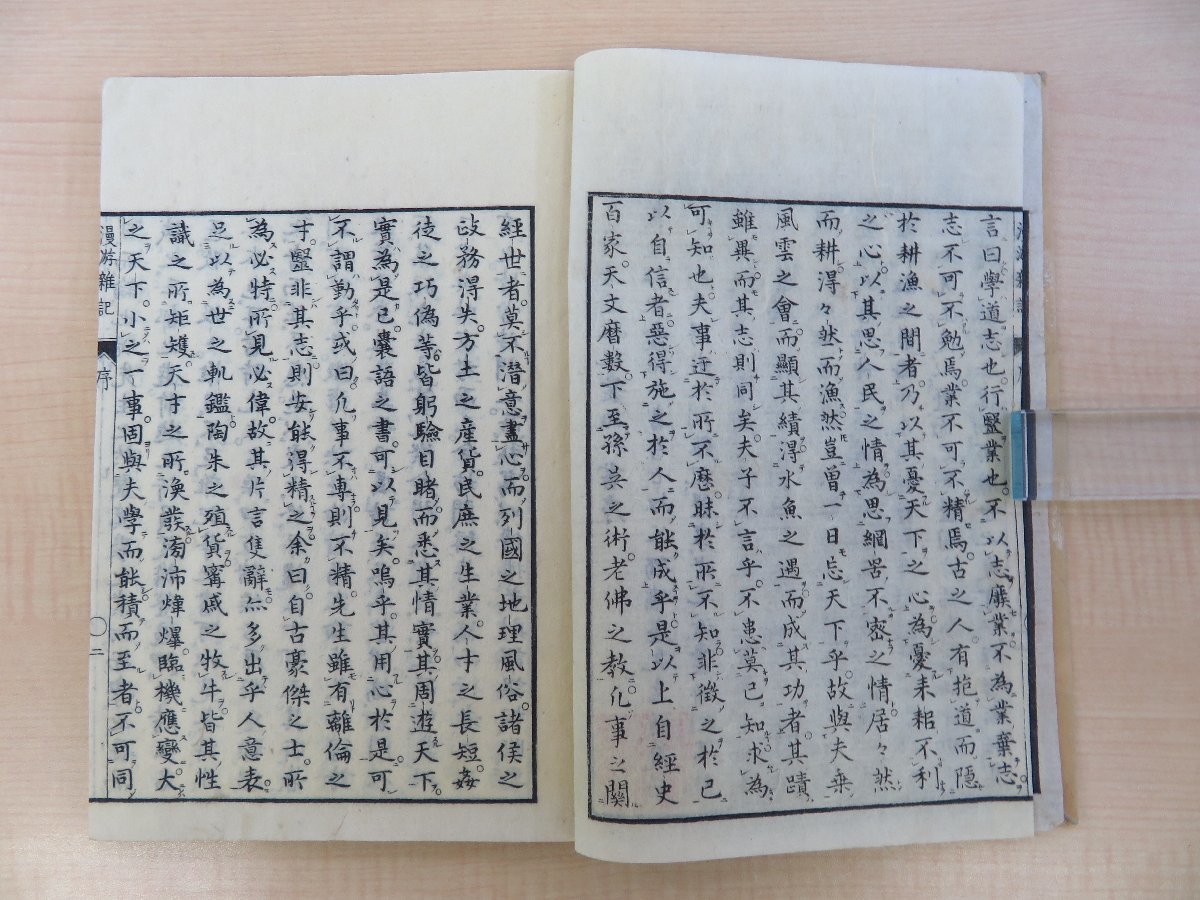 言曰學道志也。行醫業也。不以志廢業不為業棄志
志不可不勉焉業不可不精焉。古之人有抱道而隱
於耕漁之間者乃以其憂天下之心為憂耒耜不利
之心以其思人民之情為思網罟不密之情居々然
而耕得々然而漁然豈曾一日忘天下乎故與夫乗
風雲之會而顯其績得水魚之遇而成其功者其蹟
雖異而其志則同矣夫子不言乎不患莫己知求為
可知也夫事迂於所不歴昧於所不知非徴之於己
以自信者惡得施之於人而能成乎是以上自經史
百家天文暦數下至孫呉之術老佛之教凡事之關
經世者莫不潜意盡心而列國之地理風俗諸侯之
政務得失方土之産貨民庶之生業人才之長短姦
徒之巧偽等皆躬驗目睹而悉其情實其周遊天下
實為是已嚢語之書可以見矣嗚乎其用心於是可
不謂勤乎或曰凡事不專則不精先生雖有離倫之
才醫非其志則安能得精之余曰自古豪傑之士所
為必特所見必偉故其片言隻辭亦多出乎人意表
足以為世之軌鑑陶朱之殖貨甯戚之牧牛皆其性
識之所矩矱天才之所渙發滂沛煒爆臨機應變大
之天下小之一事固與夫學而能積而至者不可同
漫游雜記 序 二